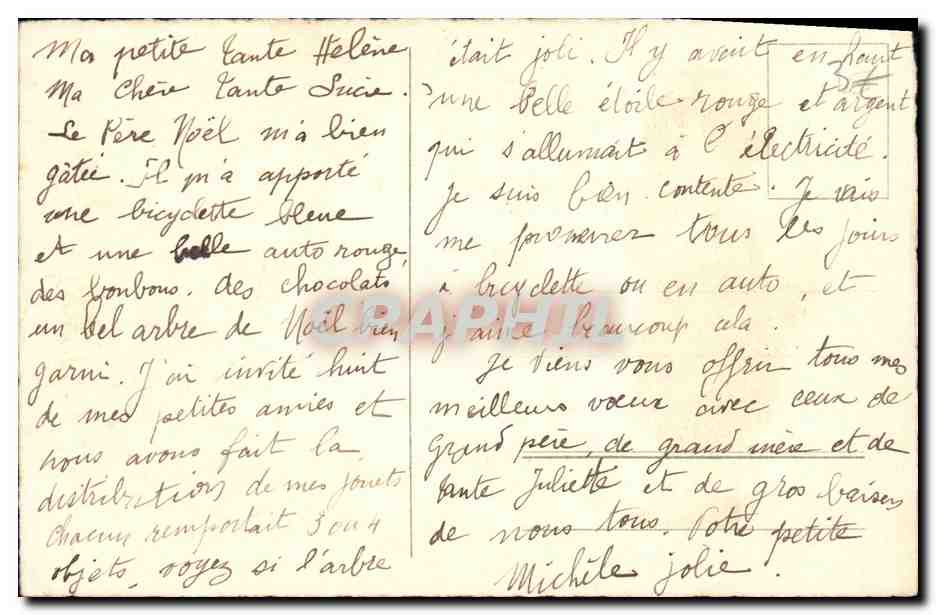 Ma petite tante Helène
Ma Chère tante Lucie.
Le Père Noël m'a bien
gâtée. Il m'a apporté
une bicyclette bleue
et une belle auto rouge,
des bonbons, des chocolats
un bel arbre de Noël bien
garni. J'ai invité huit
de mes petites amies et
nous avons fait la
distribution de mes jouets
chacun remportait 3 ou 4
objets, voyez si l'arbre
était joli. Il y avait en haut
une belle étoile rouge et argent
qui s'allumait à l'électricité.
je suis bien contente. Je vais
me promener tous les jours
à bicyclette ou en auto, et
j'aime beaucoup cela.
Je viens vous offrir tous mes
meilleurs vœux avec ceux de
Grand père, de grand mère et de
tante Juliette et de gros baisers
de nous tous. Votre petite
Michèle jolie.
CPAPHIL